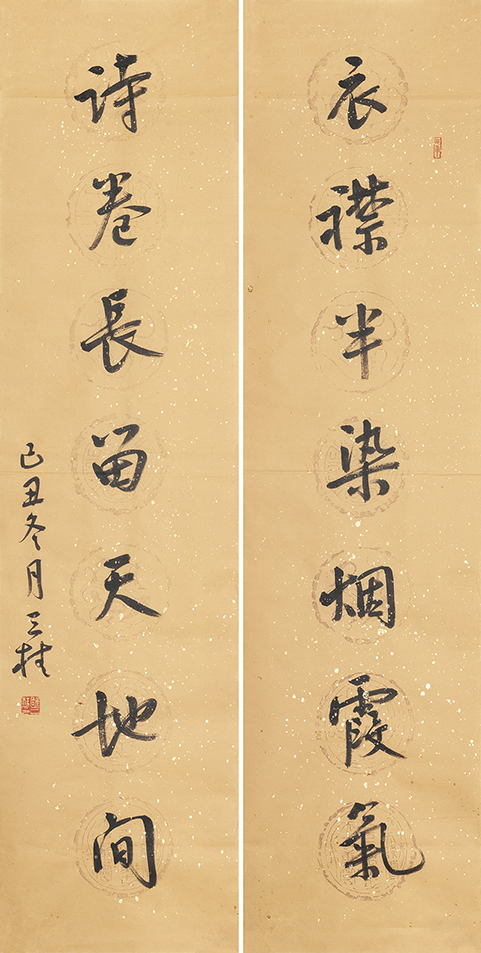 衣襟半染烟霞氣
詩卷長留天地间
己丑冬月三桂